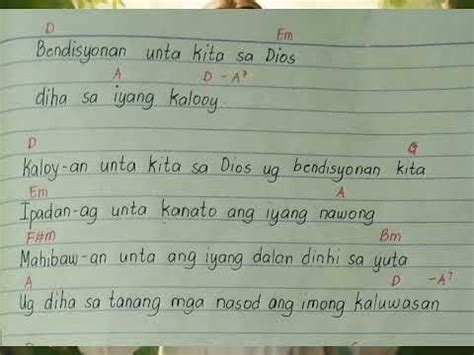 D Em
Bendisyonan unta kita sa Dios
A D - A7
diha sa iyang kalooy
D G
Kaloy-an unta kita sa Dios ug bendisyonan kita
Em A
Ipadan-ag unta kanato ang iyang nawong
F#m Bm
Mahibaw-an unta ang iyang dalan dinhi sa yuta
A D -A7
Ug diha sa tanang mga nasod ang imong kaluwasan